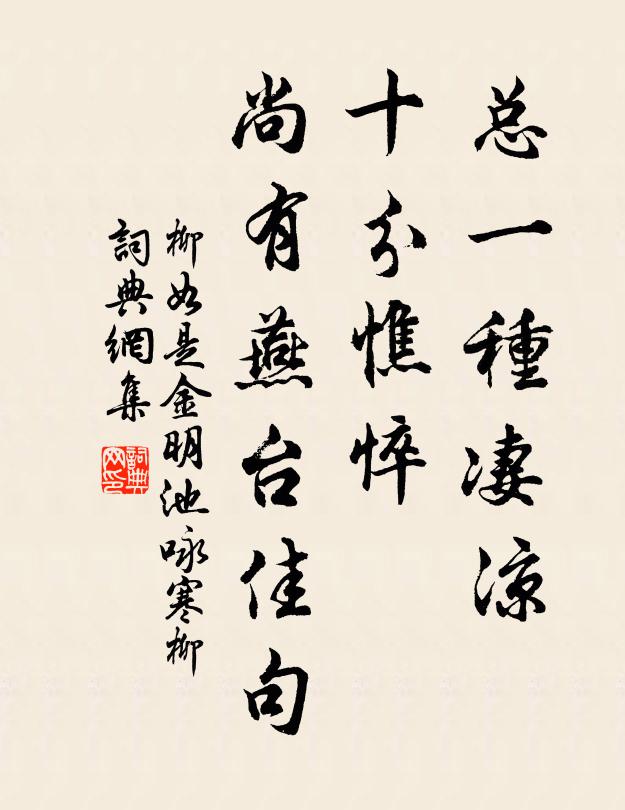 总一種凄凉
十分憔悴
尚有燕台佳句
柳如是金明池咏寒柳
詞典網集
詞典网印